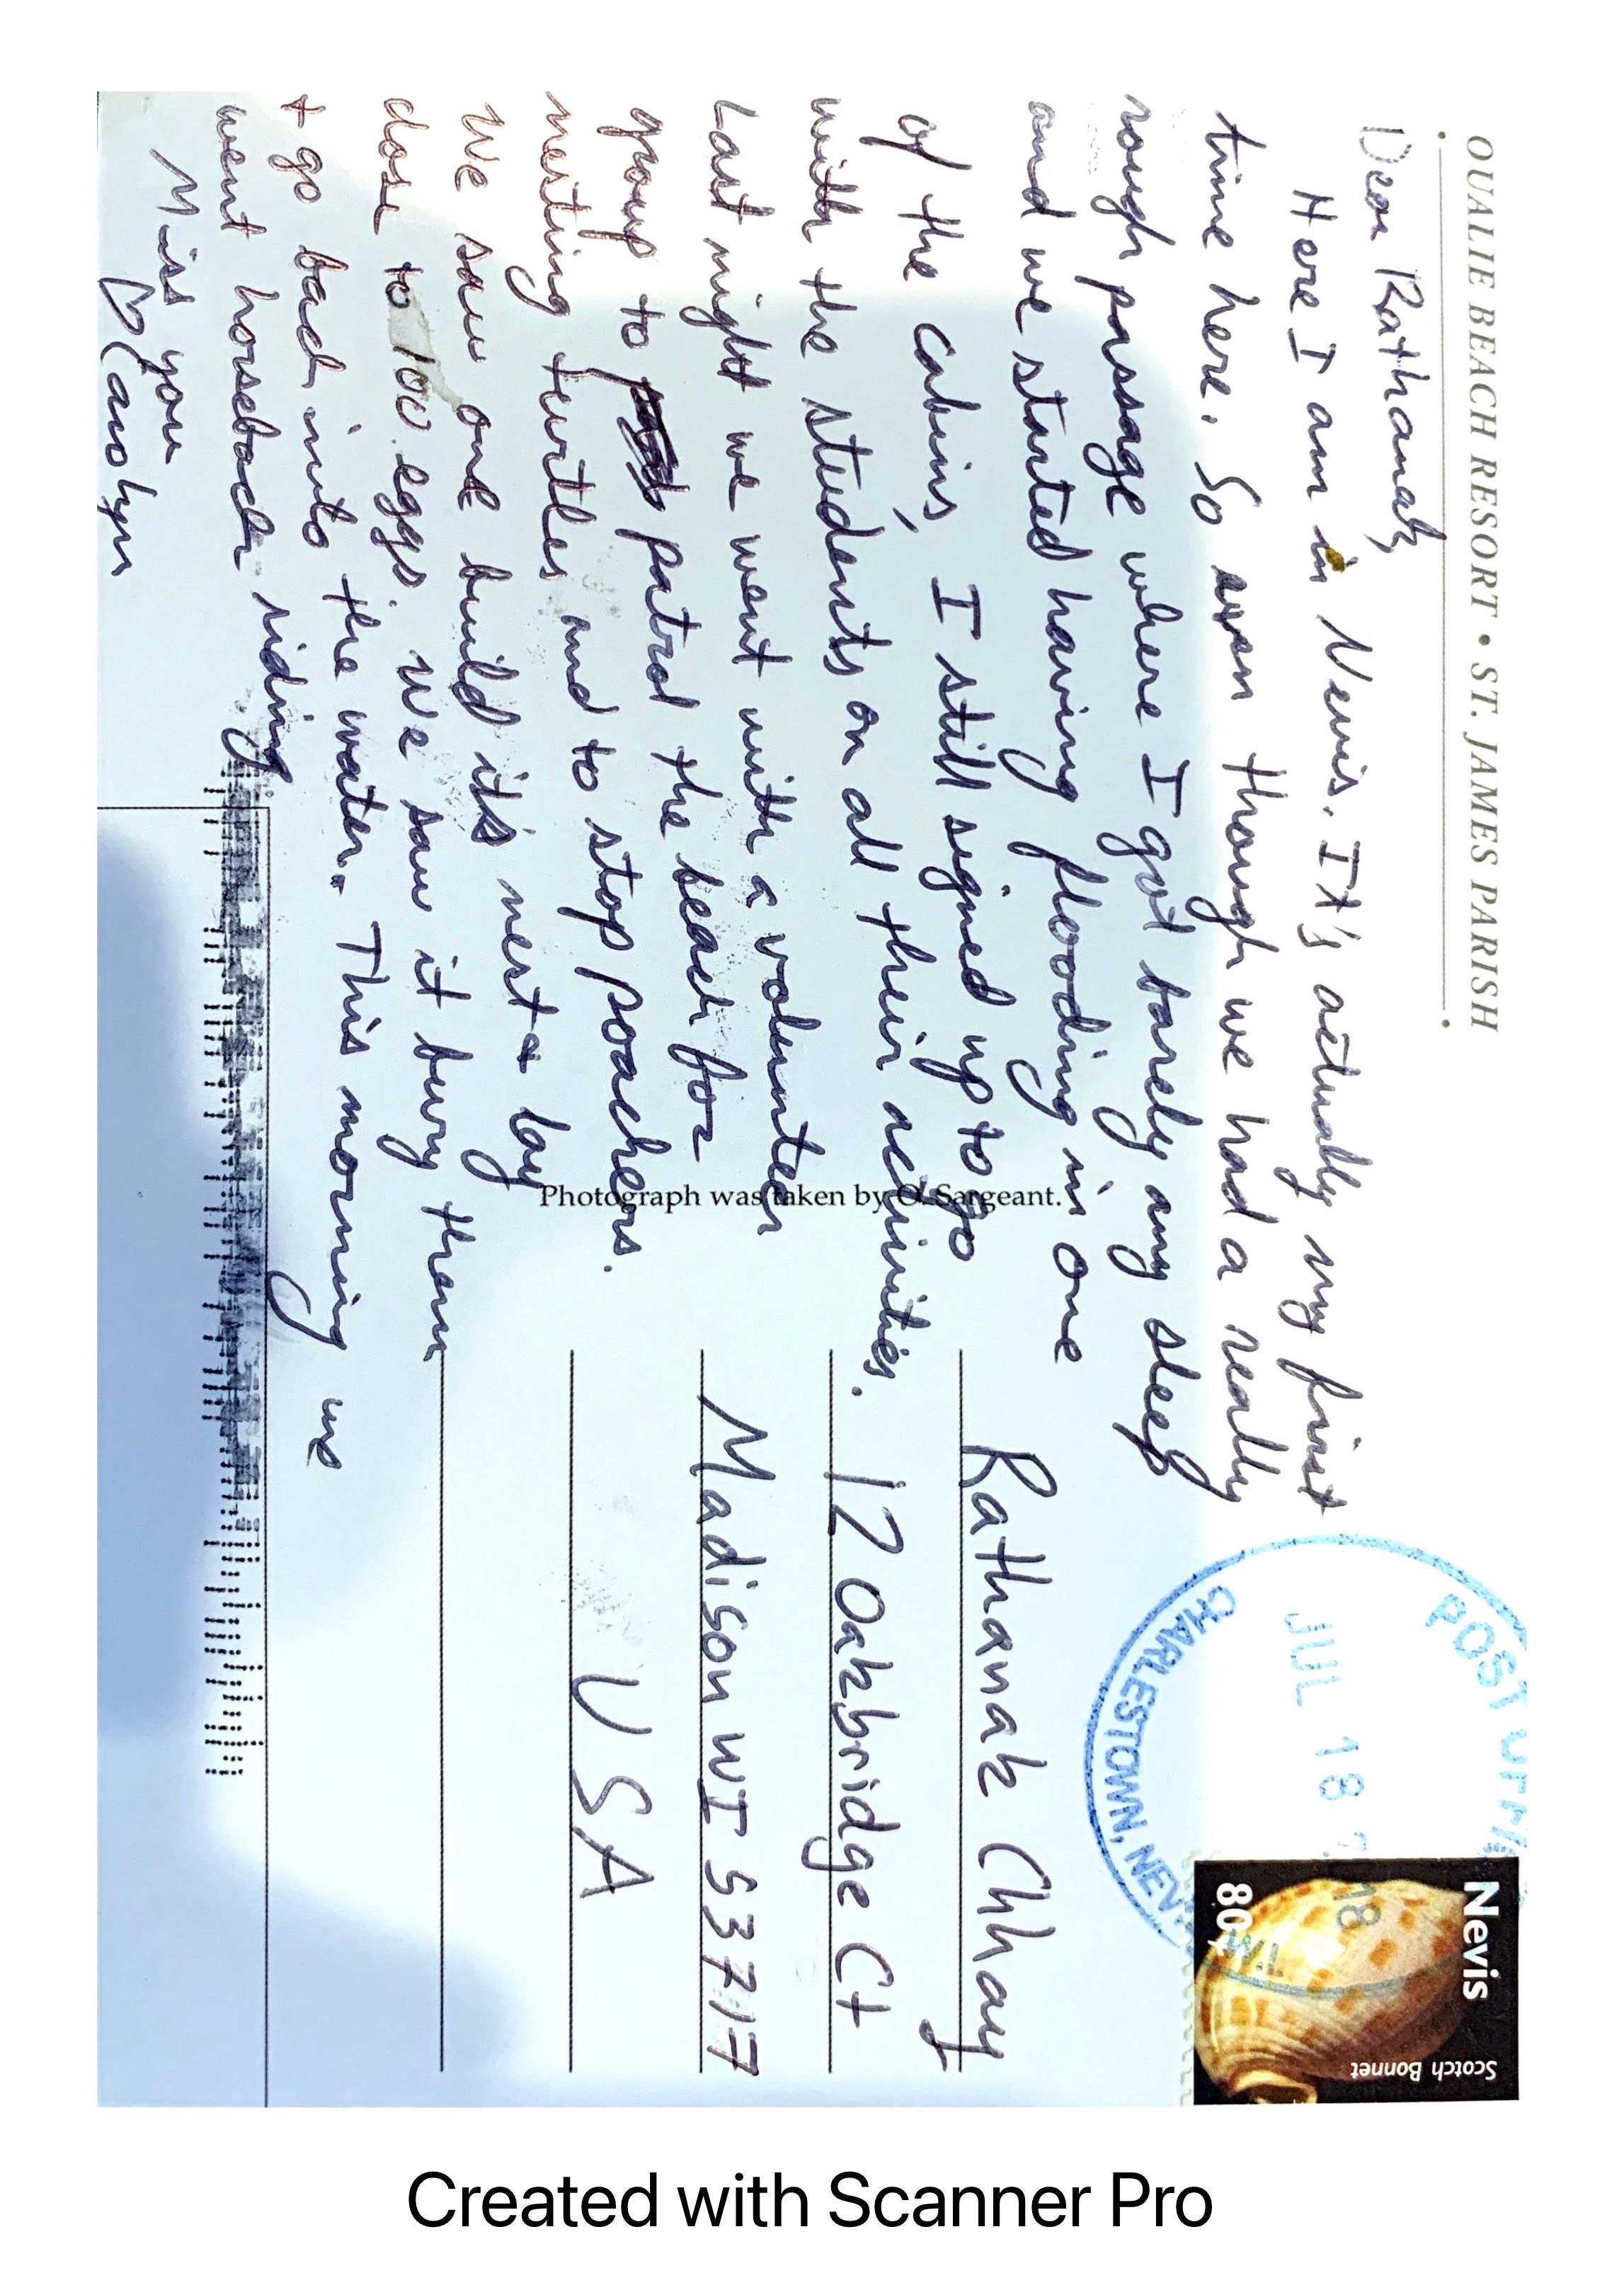 OUALIE BEACH RESORT • ST. JAMES PARISH
Dear Rathanak,
Here I am in Nevis. It's actually my first
time here. So even though we had a really
rough passage where I got barely any sleep
and we started having flooding in one
of the cabins, I still signed up to go
with the students on all their activities.
Last night we went with a volunteer
group to patrol the beach for
nesting turtles and to stop poachers.
We saw one build it's nest + lay
close to 100 eggs. We saw it bury them
+ go back into the water. This morning we
went horseback riding.
Miss you
♡ Carolyn
Photograph was taken by O. Sargeant.
POST OFFICE
JUL 18
18
CHARLESTOWN, NEVIS
Nevis
80¢
Scotch Bonnet
Rathanak Chhay
12 Oakbridge Ct
Madison WI 53717
USA
Created with Scanner Pro